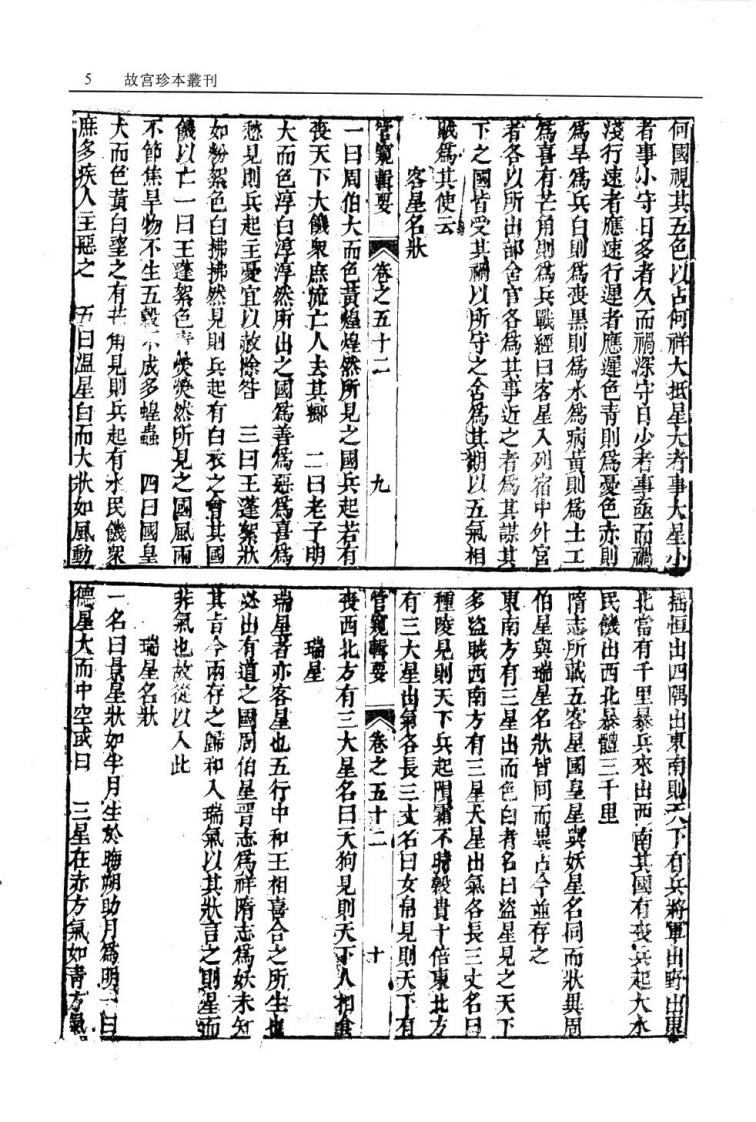 5 故宮珍本叢刊
何國視其五色以占何祥大抵星大者事大星小
者事小守日多者久而禍深守日少者事亟而禍
淺行速者應速行遲者應遲色青則爲憂色赤則
爲旱爲兵白則爲喪黑則爲水爲病黃則爲土工
爲喜有芒角則爲兵戰經曰客星入列宿中外宮
者各以所出部舍官名爲其事近之者爲其謀其
下之國皆受其禍以所守之舍爲其期以五氣相
賊爲其使云
客星名狀
管窺輯要 卷之五十二 九
一曰周伯大而色黃煌煌然所見之國兵起若有
喪天下大饑衆庶流亡人去其鄉 二曰老子明
大而色淳白淳淳然所出之國爲善爲惡爲喜爲
愁見則兵起主憂宜以赦除咎 三曰王蓬絮狀
如粉絮色白拂拂然見則兵起有白衣之會其國
饑以亡一曰王蓬絮色青熒熒然所見之國風雨
不節焦旱物不生五穀不成多蝗蟲 四曰國皇
大而色黃白望之有芒角見則兵起有水民饑衆
庶多疾人主惡之 五曰溫星白而大狀如風動
搖恒出四隅出東南則天下有兵將軍出野出東
北當有千里暴兵來出西南其國有喪兵起大水
民饑出西北暴骸三千里
隋志所載五客星國皇星與妖星名同而狀異周
伯星與瑞星名狀皆同而異占今並存之
東南方有三星出而色白者名曰盜星見之天下
多盜賊西南方有三星大星出氣各長三丈名曰
種陵見則天下兵起隕霜不時穀貴十倍東北方
有三大星出氣各長三丈名曰女帛見則天下有
管窺輯要 卷之五十二 十
喪西北方有三大星名曰天狗見則天下人相食
瑞星
瑞星者亦客星也五行中和王相喜合之所生也
必出有道之國周伯星晋志爲祥隋志爲妖未知
其旨今兩存之歸和入瑞氣以其狀言之則星而
非氣也故從以入此
瑞星名狀
一名曰景星狀如半月生於晦朔助月爲明一曰
德星大而中空或曰 三星在赤方氣如青方氣